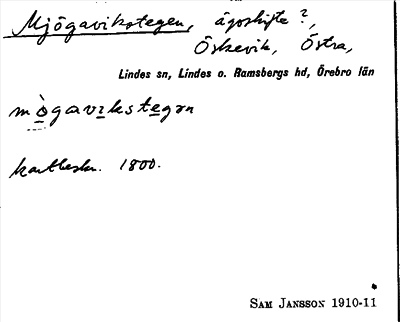 Mjögavikstegen, ägoskifte?,
Öskevik, Östra,
Lindes sn, Lindes o. Ramsbergs hd, Örebro län
mògavikstegən
kartbeskr. 1800.
SAM JANSSON 1910-11